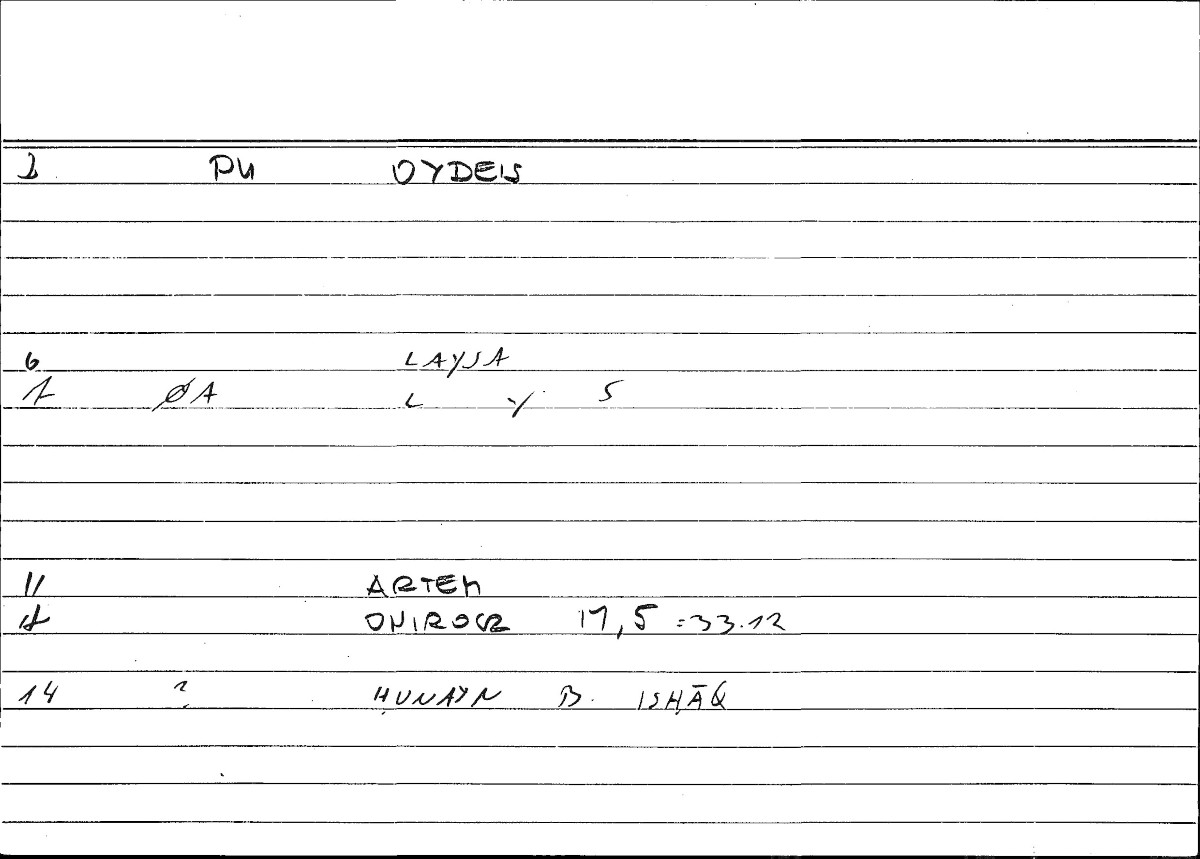 1 PN OYDEIS
6 LAYSA
7 ØA L Y S
11 ARTEM
12 ONIROCR 17,5 = 33.12
14 ? ḤUNAYN B. ISḤĀQ